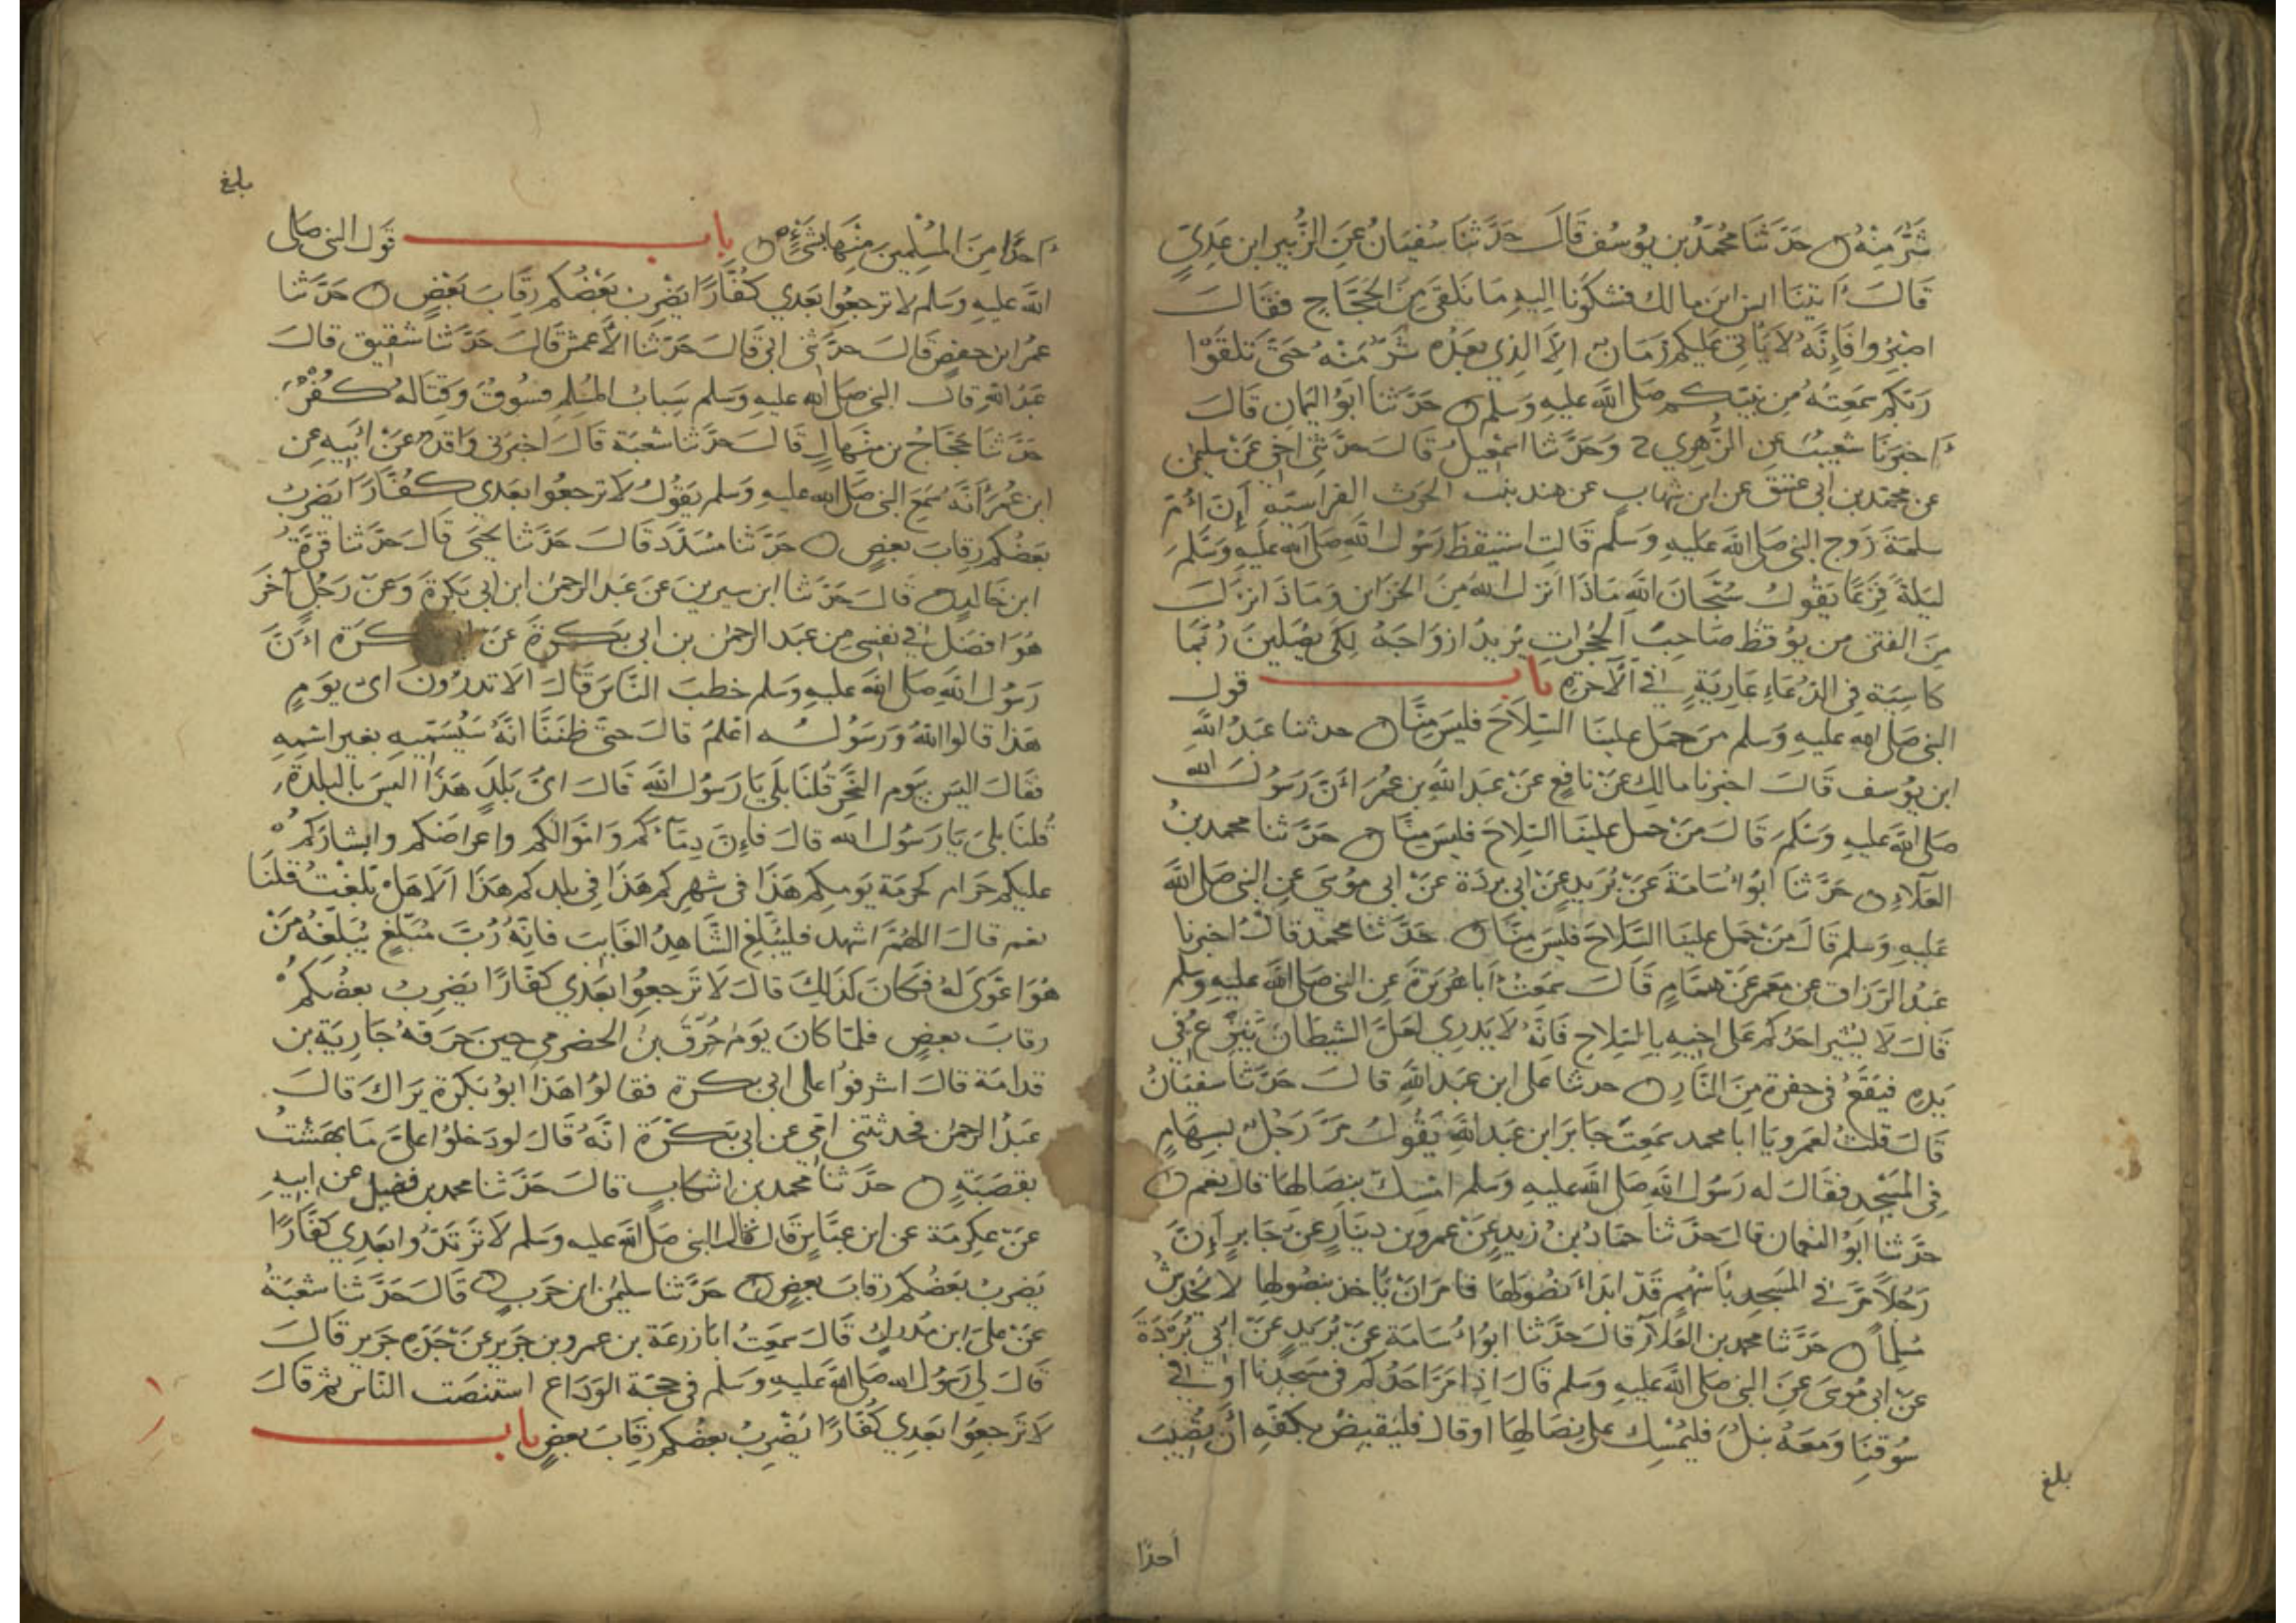 شَرٌّ مِنْهُ ۞ حَدَّثَنَا مُحَمَّدُ بن يُوسُف قَالَ حَدَّثَنَا سُفْيَانُ عَنِ الزُّبَيرِ ابن عَدِيٍّ
قَالَ أَتَيْنَا انس ابن مالك فشكونا اليهِ مَا نَلقَى مِنَ الحَجَّاجِ فقَالَ
اصْبِرُوا فَإِنَّهُ لَا يَأتِي عَليكم زَمَانٌ إلَّا الذِي بَعْدَهُ شَرٌّ مِنْهُ حَتَّى تَلقَوْا
رَبَّكُمْ سَمِعْتهُ مِن نَبيّكم صَلى اللَّه عَليهِ وَسَلم ۞ حَدَّثَنَا ابُو اليَمانِ قَالَ
أَخبَرَنَا شعَيبٌ عَنِ الزُّهرِي ح وَحَدَّثَنَا اسمعيلُ قَالَ حَدَّثَنِي اخِي عَنْ سليمٰن
عن محمَّدِ بن ابي عَتيق عن ابن شهابٍ عَن هند بنت الحرث الفراسيَّةِ إنَّ أُمَّ
سَلمَةَ زَوج النبي صَلى الله عَليهِ وَسَلم قَالتِ استيقظَ رَسُول اللَّهِ صَلى الله عَليهِ وَسَلمَ
لَيلةً فَزِعًا يَقُولُ سُبْحَانَ اللَّهِ مَاذَا انزل اللهُ مِنَ الخزَاين وَمَاذَا انزلَ
مِنَ الفتن من يُوقظ صَاحِبَ الحُجُرَاتِ يُريدُ ازوَاجَهُ لِكَي يُصَلينَ رُبَّمَا
كَاسِيَة فِي الدنيا عَارِيَةٍ في الآخرة بابُ قول
النبي صَلى الله عليهِ وَسَلم مَن حَمَل علينَا السِّلاَحَ فليسَ مِنَّا ۞ حدثنا عَبدُ اللَّهِ
ابن يُوسف قَالَ اخبرنا مالِك عَنْ نافعٍ عَنْ عَبد اللَّهِ بن عُمَرَ أَنَّ رَسُولَ الله
صَلى الله عَليهِ وَسَلمَ قَالَ مَنْ حمَل علينَا السِّلاحَ فليسَ مِنَّا ۞ حَدَّثنا محمد بنُ
العَلاءِ ۞ حَدَّثَنَا ابُو أُسَامَةَ عَنْ بُرَيدٍ عَنْ ابي بردَة عَنْ ابي مُوسَى عَنِ النبي صَلى اللَّه
عَليهِ وَسَلم قَالَ مَنْ حَمَل علينَا السِّلَاحَ فليسَ مِنَّا ۞ حَدَّثَنَا محمد قالَ اخبرنا
عَبدُ الرَّزاق عن مَعمَر عَنْ همَّامٍ قَالَ سَمِعتُ أبَا هُرَيرَةَ عَنِ النبي صَلى اللَّه عَليهِ وَسَلم
قَالَ لَا يُشير احَدُكم عَلى اخِيهِ بالسِّلاحِ فَانَّهُ لَا يَدرِي لعَلَّ الشيطانَ يَنزعُ في
يَدِهِ فيَقعُ في حفرةٍ مِنَ النَّارِ ۞ حدثنا عَلى ابن عَبدِ اللَّهِ قالَ حَدَّثَنَا سفيَانُ
قَالَ قلتُ لعَمرو يَا ابا محمد سَمِعتَ جَابرَ ابن عَبد الله يَقُولُ مَرَّ رَجُلٌ بسِهَامٍ
فِي المَسْجِدِ فقالَ له رَسُولُ اللَّهِ صَلى اللَّه عَليهِ وَسَلم امسِكْ بنِصَالها قال نعَم ۞
حَدَّثَنَا ابُو النعمان قَالَ حَدَّثَنَا حمَادُ بنُ زيدٍ عَنْ عمرو بن دِينَارٍ عَن جَابرٍ إِنَّ
رَجُلًا مَرَّ في المَسجِدِ بأَسْهُمٍ قَدْ ابدَأ نُصُولهَا فامَرَ انْ يَأخذ بنصُولِها لا يَخدِشُ
مُسلِمًا ۞ حَدَّثَنَا محمد بن العَلاَءِ قَالَ حَدَّثَنَا ابُو أُسَامَة عَنْ بُرَيدٍ عَنْ ابي بُرْدَةَ
عَنْ ابي مُوسَى عَنِ النبي صَلى اللَّهِ عَليهِ وَسَلم قَالَ اذا مَرَّ احَدُكُم في مَسجدِنا اوْ في
سُوقِنَا وَمَعَهُ نَبْلٌ فليُمْسِك على نِصَالِهَا اوقال فليَقبِضْ بكفّهِ انْ يُصِيبَ
بلغ
أحدًا
بلغ
أَحَدًا مِنَ المُسْلِمِينَ مِنْهَا بشَيْءٍ ۞ بابُ قَول النبي صَلى
الله عَليهِ وَسَلم لا ترجعُوا بَعدي كُفَّارًا يَضرِبُ بَعْضُكم رقَابَ بَعْضٍ ۞ حَدَّثَنَا
عمرُ ابن حفصٍ قَالَ حدَّثني ابي قَالَ حَدَّثَنَا الأَعمشُ قَالَ حَدَّثَنَا شقيق قالَ
عَبدُ اللهِ قالَ النبي صَلى الله عليهِ وَسَلم سِبابُ المُسلِمِ فسُوقٌ وَقتَاله كُفْرٌ
حَدَّثَنَا حَجَّاجُ بن مِنهَالٍ قَالَ حَدَّثَنَا شُعْبَة قَالَ اخبَرَني وَاقدٌ عَنْ أَبيهِ عَنِ
ابن عُمَرَ أَنَّهُ سَمِعَ النبي صَلى الله عليهِ وَسَلم يَقُولُ لَا ترجعُوا بعَدي كُفَّارًا يَضربُ
بَعضُكم رِقابَ بَعضٍ ۞ حَدَّثنا مُسَدَّد قَالَ حَدَّثَنَا يحيَى قَالَ حَدَّثَنَا قُرَّةُ
ابن خَالدٍ ۞ قَالَ حَدَّثنا ابن سيرينَ عَن عَبد الرحمٰن ابن ابي بَكرَة وَعَنْ رَجُلٍ آخَرَ
هُوَ افضَل في نفسِي مِن عبَد الرحمٰن بن ابي بَكرةَ عَنْ كرَة أَنَّ
رَسُولَ اللَّهِ صَلى اللَّهَ عليهِ وَسَلم خَطبَ النَّاسَ قَالَ الَا تدرُونَ اىّ يَومٍ
هَذَا قالوا اللهُ وَرَسُولُه اعْلمُ قالَ حتَّى ظنَنَّا انَّهُ سَيُسَمِّيهِ بغير اسْمِهِ
فقَالَ اليسَ بيَوم النَّحر قُلنَا بَلَى يَا رَسُول اللهِ قَالَ اىُّ بَلَدٍ هَذَا اليسَ بالبلدَةِ
قُلنَا بلى يَا رَسُولَ الله قالَ فإِنَّ دِمَآءَكُم وَامْوَالكُم وَاعرَاضَكم وَابشارَكُمْ
عليكم حَرَام كحُرمَة يَومِكم هَذَا في شهرِكم هَذَا فِي بلدكم هَذَا أَلَا هَلْ بَلغْتُ قُلنَا
نعم قالَ اللهُمَّ اشهد فليُبَلِّغِ الشَّاهِدُ الغَايبَ فَانِّهُ رُبَّ مُبَلِّغٍ يُبَلِّغُهُ مَنْ
هُوَ اوْعَى لَهُ فكَانَ كَذَالِكَ قالَ لَا تَرجعُوا بَعَدي كفَّارًا يَضرِبُ بعضُكمْ
رقابَ بَعضٍ فلمَّا كانَ يَومَ حُرِّقَ بن الحَضرمي حينَ حَرَقهُ جَارِيَة بن
قدَامَة قالَ اشرفوا على ابي بكرة فقالوُا هَذَا ابو بَكرَة يَرَاكَ قالَ
عَبدُ الرحمٰن فحَدثتني امِّي عن ابي بَكْرَة انَّهُ قَالَ لو دَخلوُا عليَّ مَا بهَشْتُ
بقَصَبَةٍ ۞ حدَّثنا محمد بن اشكابٍ قالَ حَدَّثَنَا محمد بن فضيل عن ابيهِ
عَنْ عِكرِمَة عن ابن عبَّاسٍ قَالَ قالَ النبي صَلى اللَّه عليه وَسَلم لَا تَرْتَدُّوا بَعدِي كفَّارًا
يَضربُ بَعْضُكم رقابَ بَعضٍ ۞ حَدَّثنا سليمٰن ابن حَربٍ قَالَ حَدَّثَنَا شعْبَةُ
عَنْ علىّ ابن مُدركٍ قَالَ سمَعتُ ابَا زرعَة بن عمرو بن جَريرٍ عَنْ جَدِّهِ جَرير قَالَ
قَالَ لي رَسُول الله صَلى الله عَليهِ وَسَلم في حجَّة الوَدَاع استَنصَت النَّاسَ ثم قَالَ
لَا تَرجعوُا بَعدِي كُفَّارًا يَضْرِبُ بعضُكم رِقَابَ بَعضٍ بابُ